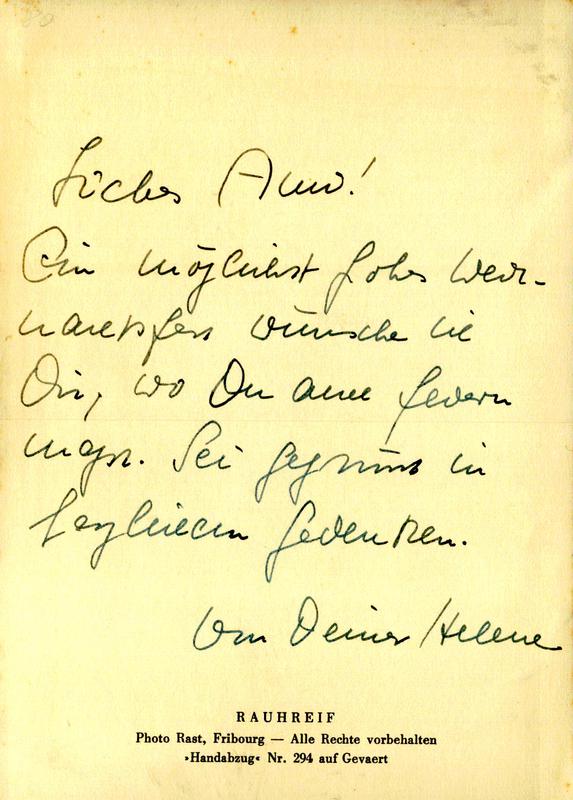 Liebes Anni!
Ein möglichst frohes Weih-
nachtsfest wünsche ich
Dir, wo Du auch feiern
magst. Sei gegrüsst in
herzlichem Gedenken.
Von Deiner Helene
RAUHREIF
Photo Rast, Fribourg — Alle Rechte vorbehalten
»Handabzug« Nr. 294 auf Gevaert